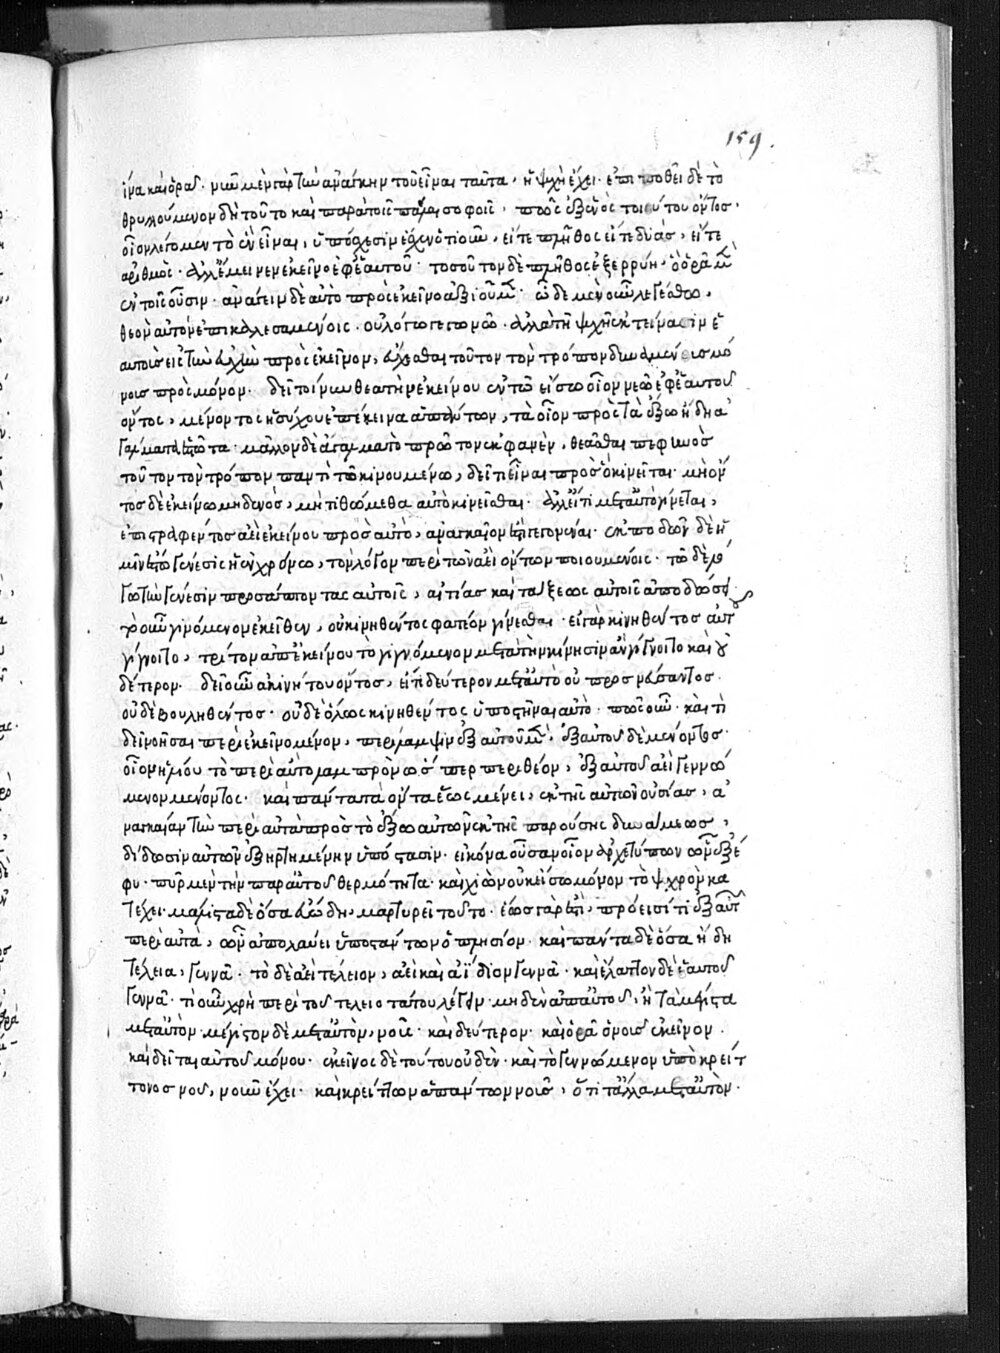 ἵνα καὶ ὁρᾷς. νῦν μὲν γὰρ τὴν ἀνάγκην τοῦ εἶναι ταῦτα, ἡ ψυχὴ ἔχει. ἐπιποθεῖ δὲ τὸ
θρυλλούμενον δὴ τοῦτο καὶ παρὰ τοῖς πάλαι σοφοῖς, πῶς ἐξ ἑνὸς τοιούτου ὄντος.
οἷον λέγομεν τὸ ἓν εἶναι, ὑπόσχεσιν ἔσχεν ὁτιοῦν, εἴτε πλῆθος εἴτε δυὰς, εἴτε
ἀριθμὸς. ἀλλ' ἔμεινεν ἐκεῖνο ἐφ' ἑαυτοῦ. τοσοῦτον δὲ πλῆθος ἐξερρύη. ὃ ὁρᾶται μὲν
ἐν τοῖς οὖσιν. ἀνάγειν δὲ αὐτὸ πρὸς ἐκεῖνο ἀξιοῦμεν. ὧδε μὲν οὖν λεγέσθω,
θεὸν αὐτὸν ἐπικαλεσαμένοις. οὐ λόγῳ γεγωνῷ. ἀλλὰ τῇ ψυχῇ ἐκτείνασιν ἑ
αυτοὺς εἰς εὐχὴν πρὸς ἐκεῖνον, εὔχεσθαι τοῦτον τὸν τρόπον δυναμένους μό
νους πρὸς μόνον. δεῖ τοίνυν θεατὴν ἐκείνου ἐν τῷ εἴσω οἷον νεῷ ἐφ' ἑαυτοῦ
ὄντος, μένοντος ἡσύχου ἐπέκεινα ἁπάντων, τὰ οἷον πρὸς τὰ ἔξω ἤδη ἀ
γάλματα ἑστῶτα. μᾶλλον δὲ ἄγαλμα τὸ πρῶτον ἐκφανὲν, θεᾶσθαι πεφηνὸς
τοῦτον τὸν τρόπον παντὶ τῷ κινουμένῳ, δεῖ τι εἶναι πρὸς ὃ κινεῖται. μὴ ὄν
τος δὲ ἐκείνῳ μηδενὸς, μὴ τιθώμεθα αὐτὸ κινεῖσθαι. ἀλλ' εἴ τι μετ' αὐτὸ γίνεται,
ἐπιστραφέντος ἀεὶ ἐκείνου πρὸς αὐτὸ, ἀναγκαῖόν ἐστι γεγονέναι. ἐκποδὼν δὲ ἡ
μῖν ἔστω γένεσις ἡ ἐν χρόνῳ, τὸν λόγον περὶ τῶν ἀεὶ ὄντων ποιουμένοις. τῷ δὲ λό
γῳ τὴν γένεσιν προσάπτοντας αὐτοῖς, αἰτίας καὶ τάξεως αὐτοῖς ἀποδώσειν.
τὸ οὖν γινόμενον ἐκεῖθεν, οὐ κινηθέντος φατέον γίνεσθαι. εἰ γὰρ κινηθέντος αὐτοῦ
γίγνοιτο, τρίτον ἀπ' ἐκείνου τὸ γιγνόμενον μετὰ τὴν κίνησιν ἂν γίγνοιτο καὶ οὐ
δεύτερον. δεῖ οὖν ἀκινήτου ὄντος, εἴ τι δεύτερον μετ' αὐτὸ οὐ προσνεύσαντος.
οὐδὲ βουληθέντος. οὐδὲ ὅλως κινηθέντος ὑποστῆναι αὐτὸ. πῶς οὖν. καὶ τί
δεῖ νοῆσαι περὶ ἐκεῖνο μένον, περίλαμψιν ἐξ αὐτοῦ μὲν, ἐξ αὐτοῦ δὲ μένοντος.
οἷον ἡλίου τὸ περὶ αὐτὸ λαμπρὸν ὥσπερ περιθέον, ἐξ αὐτοῦ ἀεὶ γεννώ
μενον μένοντος. καὶ πάντα τὰ ὄντα ἕως μένει, ἐκ τῆς αὑτῶν οὐσίας, ἀ
ναγκαίαν τὴν περὶ αὐτὰ πρὸς τὸ ἔξω αὐτῶν ἐκ τῆς παρούσης δυνάμεως,
δίδωσιν αὐτῶν ἐξηρτημένην ὑπόστασιν. εἰκόνα οὖσαν οἷον ἀρχετύπων ὧν ἐξέ
φυ. πῦρ μὲν τὴν παρ' αὑτοῦ θερμότητα. καὶ χιὼν οὐκ εἴσω μόνον τὸ ψυχρὸν κα
τέχει. μάλιστα δὲ ὅσα εὐώδη, μαρτυρεῖ τοῦτο. ἕως γάρ ἐστι, πρόεισί τι ἐξ αὐτῶν
περὶ αὐτὰ, ὧν ἀπολαύει ὑποστάντων ὁ πλησίον. καὶ πάντα δὲ ὅσα ἤδη
τέλεια, γεννᾷ. τὸ δὲ ἀεὶ τέλειον, ἀεὶ καὶ ἀΐδιον γεννᾷ. καὶ ἔλαττον δὲ ἑαυτοῦ
γεννᾷ. τί οὖν χρὴ περὶ τοῦ τελειοτάτου λέγειν. μηδὲν ἀπ' αὐτοῦ, ἢ τὰ μέγιστα
μετ' αὐτὸν. μέγιστον δὲ μετ' αὐτὸν, νοῦς. καὶ δεύτερον. καὶ ὁρᾷ ὁ νοῦς ἐκεῖνον.
καὶ δεῖται αὐτοῦ μόνου. ἐκεῖνος δὲ τούτου οὐδὲν. καὶ τὸ γεννώμενον ὑπὸ κρείτ
τονος νοῦ, νοῦν ἔχει. καὶ κρείττων ἁπάντων νοῦς, ὅτι τἆλλα μετ' αὐτὸν.
159.